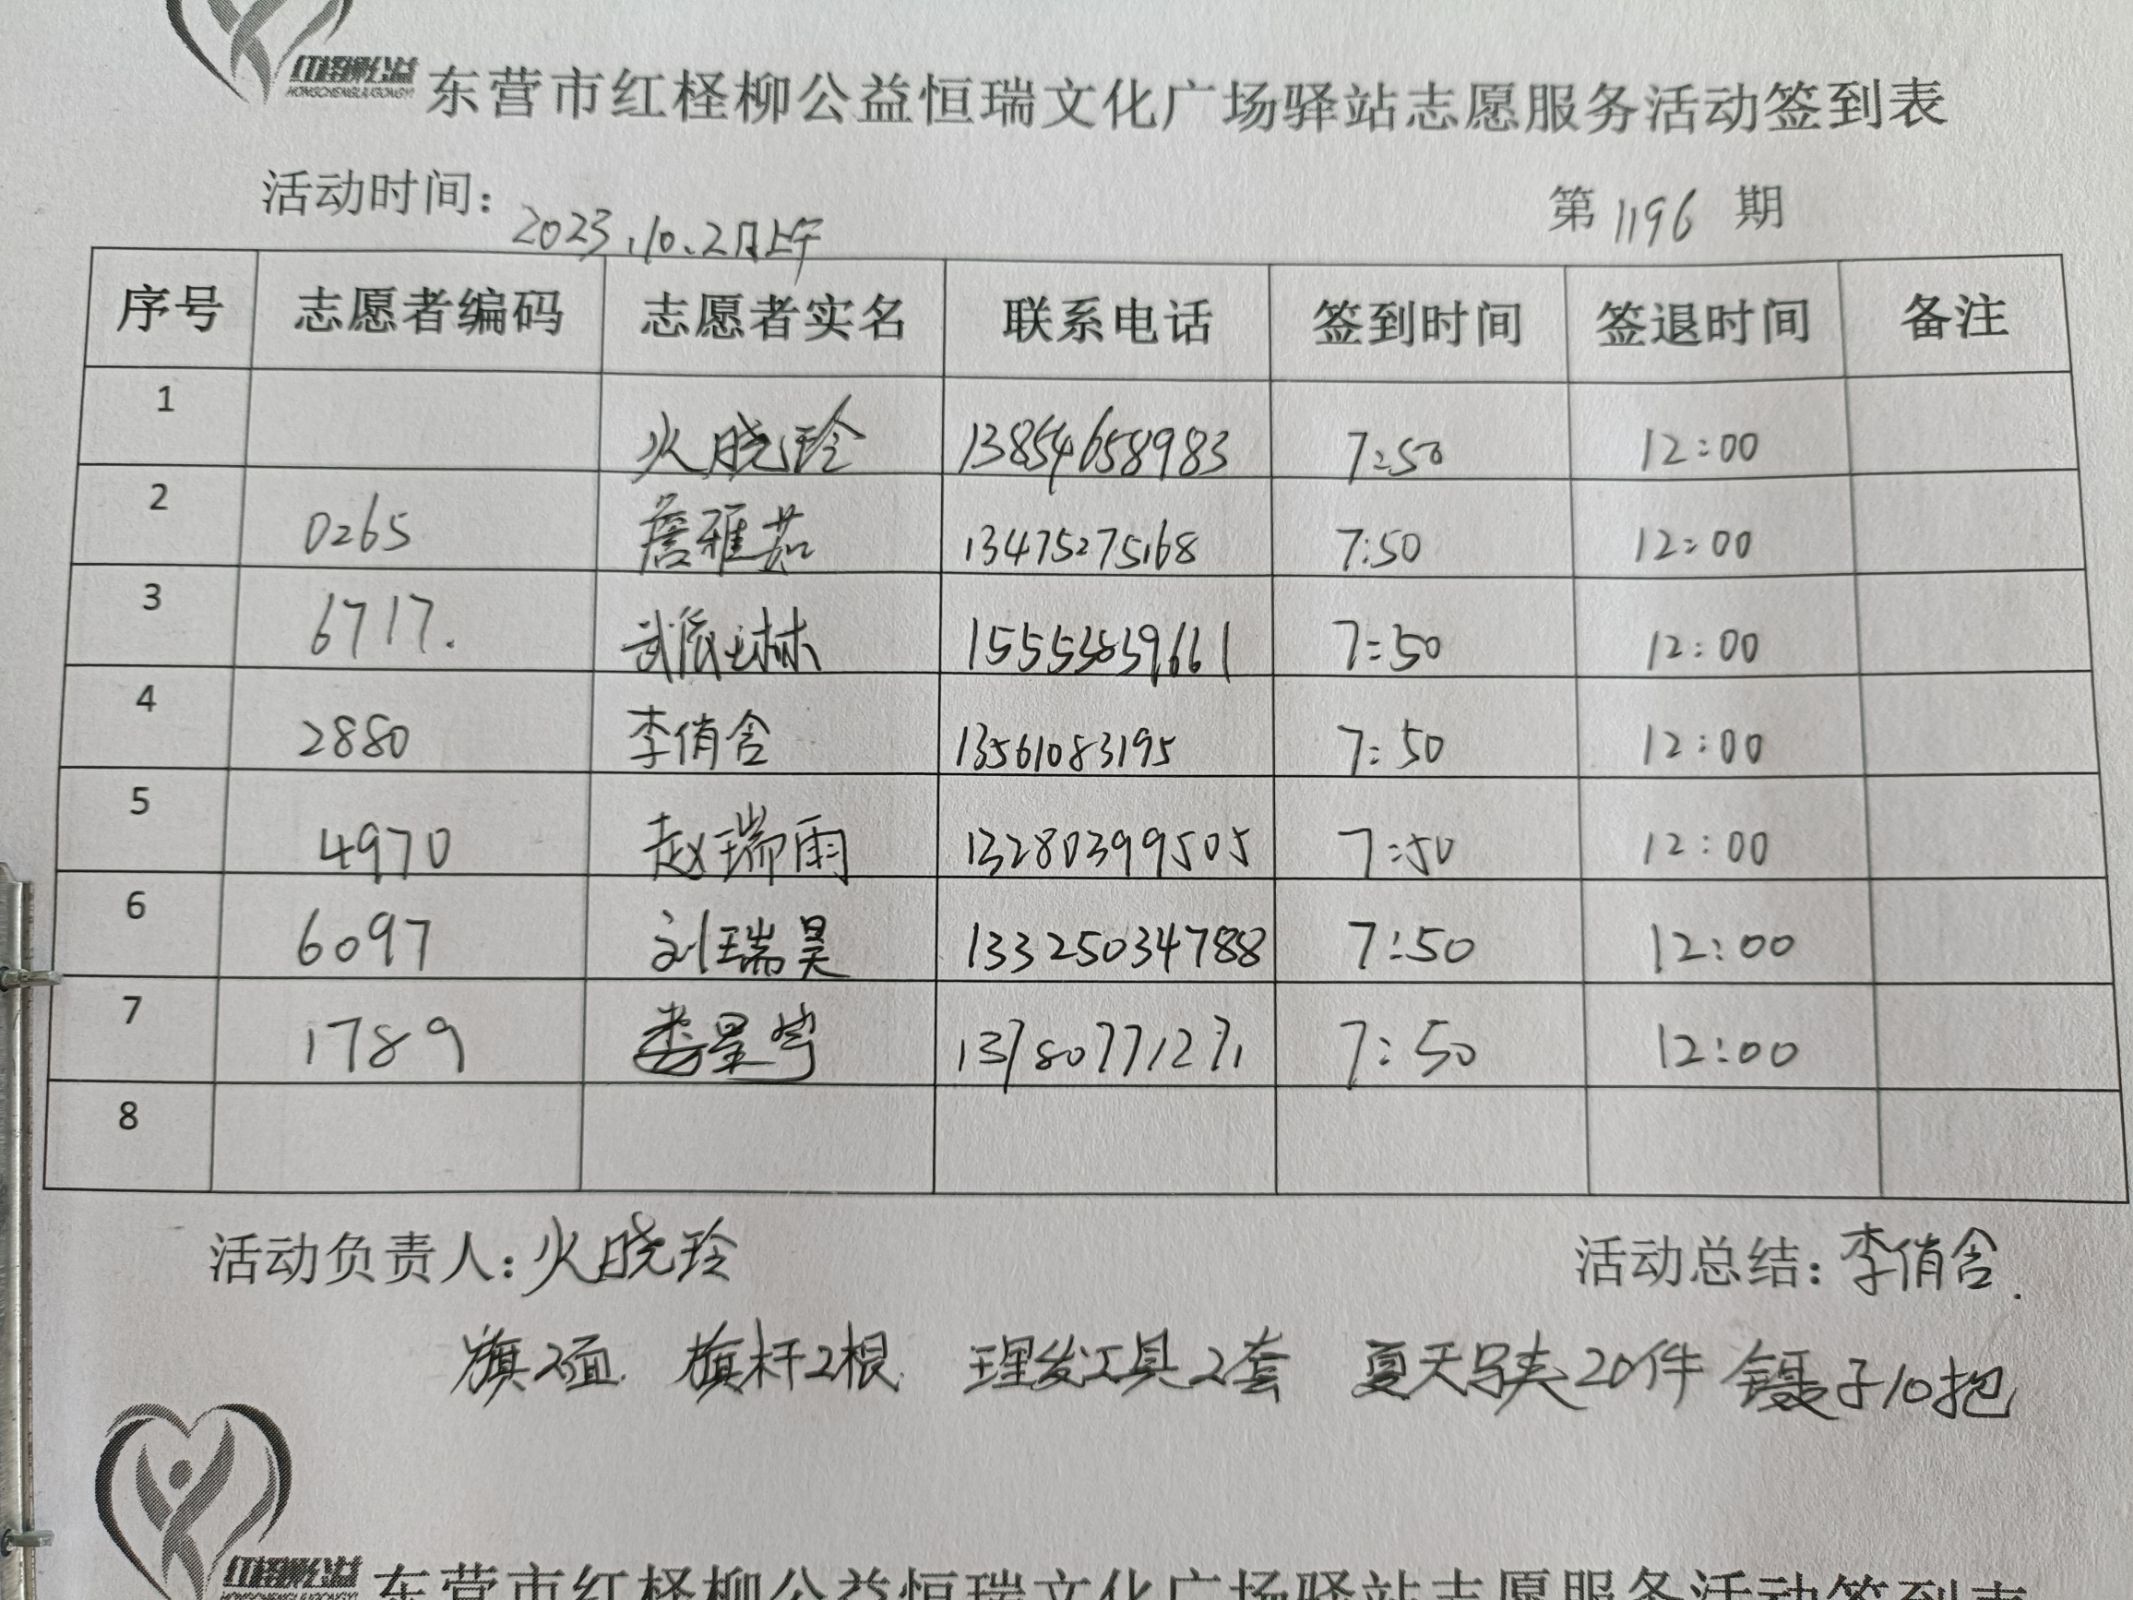 红柽柳公益
HONGCHENGLIUGONGYI
东营市红柽柳公益恒瑞文化广场驿站志愿服务活动签到表
活动时间：2023.10.2日上午 第1196期
序号 志愿者编码 志愿者实名 联系电话 签到时间 签退时间 备注
1 火晓玲 13854658983 7:50 12:00
2 0265 詹雅茹 13475275168 7:50 12:00
3 6717. 武 林 15553839661 7:50 12:00
4 2880 李俏含 13561083195 7:50 12:00
5 4970 赵瑞雨 13280399505 7:50 12:00
6 6097 刘瑞昊 13325034788 7:50 12:00
7 1789 娄星宇 13780771271 7:50 12:00
8
活动负责人：火晓玲 活动总结：李俏含.
旗2面. 旗杆2根. 理发工具2套 夏天马夹20件 镊子10把
红柽柳公益
东营市红柽柳公益恒瑞文化广场驿站志愿服务活动签到表